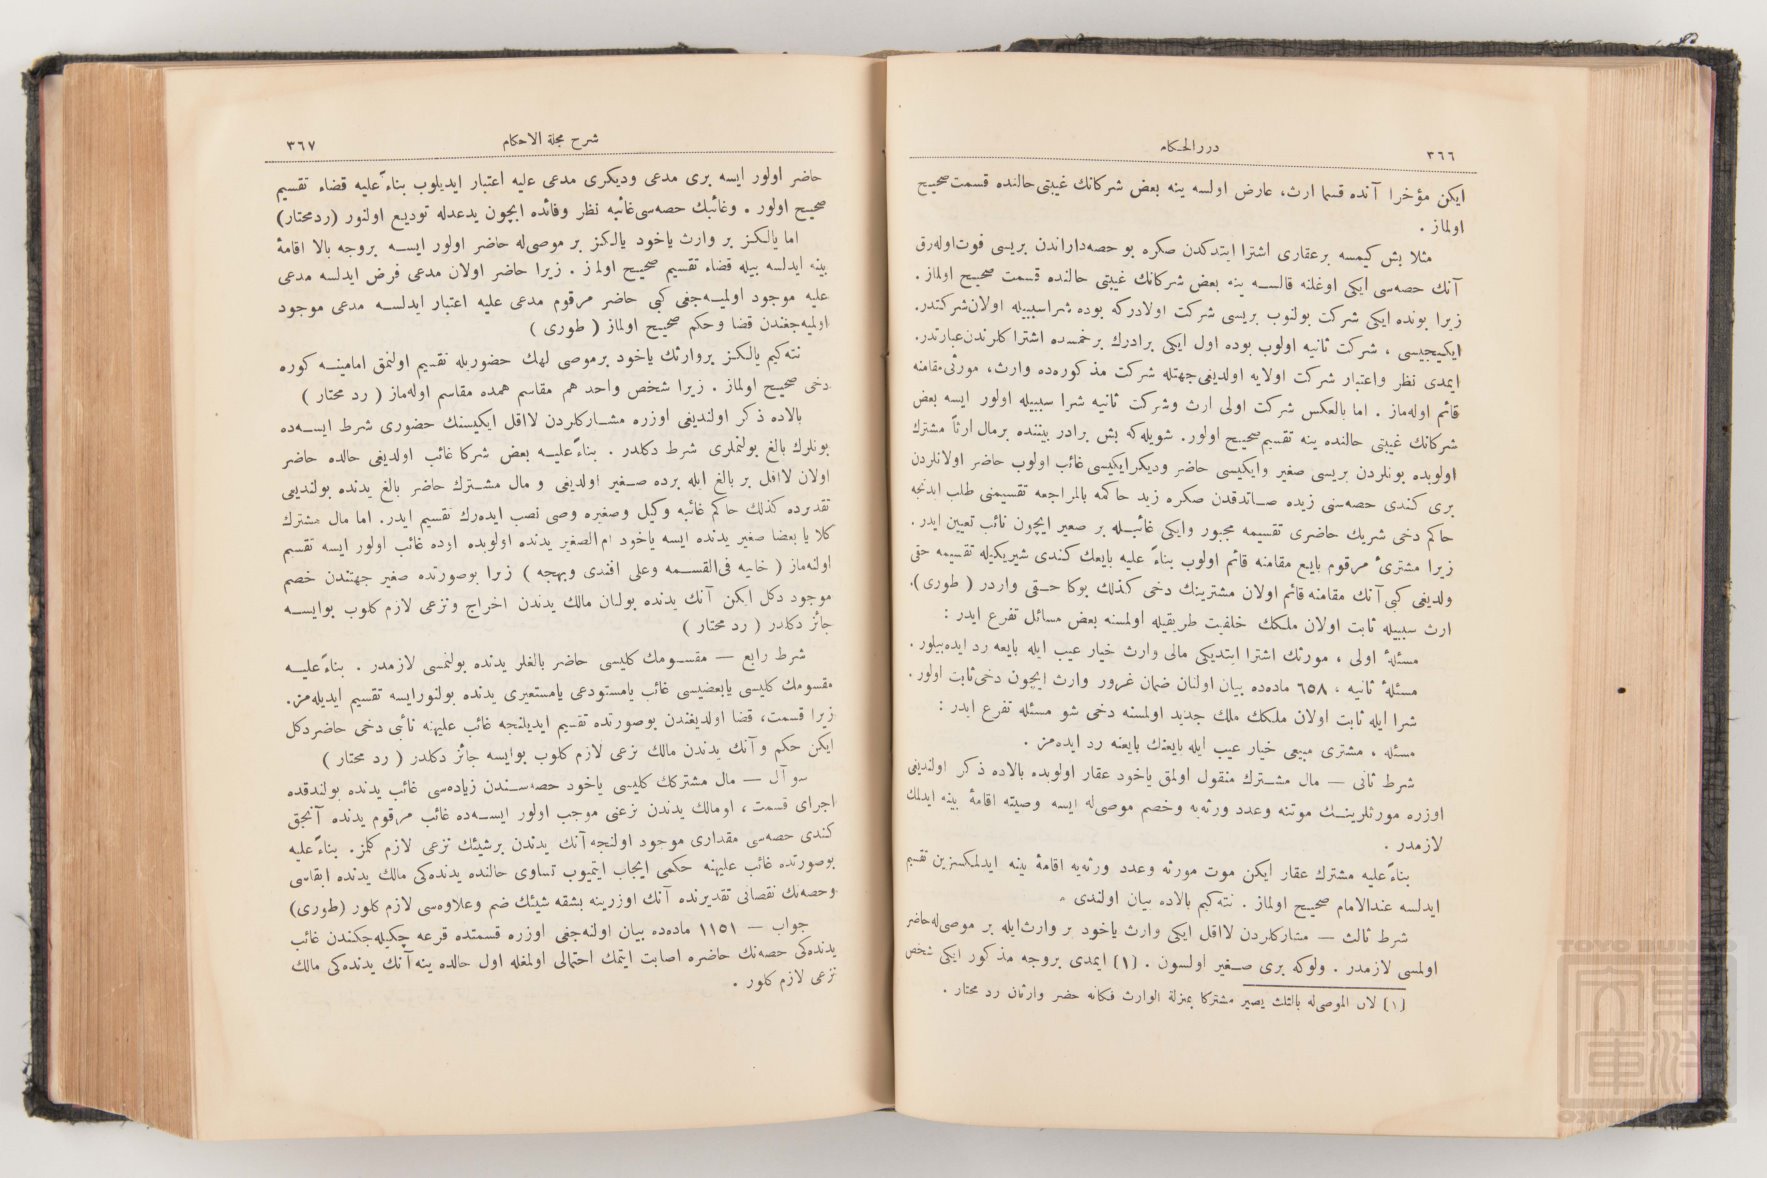 ٣٦٦
درر الحكام
ايكن مؤخرا آنده قسما ارث، عارض اولسه ينه بعض شركانك غيبتى حالنده قسمت صحيح
اولماز .
مثلا بش كيمسه بر عقارى اشترا ايتدكدن صكره بو حصه‌داراندن بريسى فوت اوله‌رق
آنك حصه‌سى ايكى اوغلنه قالسه ينه بعض شركانك غيبتى حالنده قسمت صحيح اولماز .
زيرا بونده ايكى شركت بولنوب بريسى شركت اولادركه بوده شراسببيله اولان شركتدر.
ايكيجيسى ، شركت ثانيه اولوب بوده اول ايكى برادرك بر خمسده اشتراكلرندن عبارتدر.
ايمدى نظر واعتبار شركت اولايه اولديغى جهتله شركت مذكوره‌ده وارث، مورثى مقامنه
قائم اوله‌ماز . اما بالعكس شركت اولى ارث وشركت ثانيه شرا سببيله اولور ايسه بعض
شركانك غيبتى حالنده ينه تقسيم صحيح اولور. شويله‌كه بش برادر بيننده بر مال ارثاً مشترك
اولوبده بونلردن بريسى صغير وايكيسى حاضر وديكر ايكيسى غائب اولوب حاضر اولانلردن
برى كندى حصه‌سنى زيده صاتدقدن صكره زيد حاكمه بالمراجعه تقسيمنى طلب ايدنجه
حاكم دخى شريك حاضرى تقسيمه مجبور وايكى غائبله بر صغير ايچون نائب تعيين ايدر.
زيرا مشترئ مرقوم بايع مقامنه قائم اولوب بناءً عليه بايعك كندى شيريكيله تقسيمه حقى
ولديغى كبى آنك مقامنه قائم اولان مشترينك دخى كذلك بوكا حقى واردر ( طورى ).
ارث سببيله ثابت اولان ملكك خلفيت طريقيله اولمسنه بعض مسائل تفرع ايدر :
مسئلهٔ اولى ، مورثك اشترا ايتديكى مالى وارث خيار عيب ايله بايعه رد ايده‌بيلور .
مسئلهٔ ثانيه ، ٦٥٨ ماده‌ده بيان اولنان ضمان غرور وارث ايچون دخى ثابت اولور .
شرا ايله ثابت اولان ملكك ملك جديد اولمسنه دخى شو مسئله تفرع ايدر :
مسئله ، مشترى مبيعى خيار عيب ايله بايعنك بايعنه رد ايده‌مز .
شرط ثانى — مال مشترك منقول اولمق ياخود عقار اولوبده بالاده ذكر اولنديغى
اوزره مورثلرينك موتنه وعدد ورثه‌يه وخصم موصى‌له ايسه وصيته اقامهٔ بينه ايدلمك
لازمدر .
بناءً عليه مشترك عقار ايكن موت مورثه وعدد ورثه‌يه اقامهٔ بينه ايدلمكسزين تقسيم
ايدلسه عندالامام صحيح اولماز . نته‌كيم بالاده بيان اولندى .
شرط ثالث — مشاركلردن لااقل ايكى وارث ياخود بر وارث ايله بر موصى‌له حاضر
اولمسى لازمدر . ولوكه برى صغير اولسون . (١) ايمدى بروجه مذكور ايكى شخص
(١) لان الموصى‌له بالثلث يصير مشتركا بمنزلة الوارث فكانه حضر وارثان رد محتار .
شرح مجلة الاحكام
٣٦٧
حاضر اولور ايسه برى مدعى وديكرى مدعى عليه اعتبار ايديلوب بناءً عليه قضاء تقسيم
صحيح اولور . وغائبك حصه‌سى غائبه نظر وفائده ايچون يدعدله توديع اولنور (ردمحتار)
اما يالكز بر وارث ياخود يالكز بر موصى‌له حاضر اولور ايسه بروجه بالا اقامهٔ
بينه ايدلسه بيله قضاء تقسيم صحيح اولماز . زيرا حاضر اولان مدعى فرض ايدلسه مدعى
عليه موجود اوليه‌جغى كبى حاضر مرقوم مدعى عليه اعتبار ايدلسه مدعى موجود
اوليه‌جغندن قضا وحكم صحيح اولماز ( طورى )
نته‌كيم يالكز بروارثك ياخود برموصى لهك حضوريله تقسيم اولنمق امامينه كوره
دخى صحيح اولماز . زيرا شخص واحد هم مقاسم همده مقاسم اوله‌ماز ( رد محتار )
بالاده ذكر اولنديغى اوزره مشاركلردن لااقل ايكيسنك حضورى شرط ايسه‌ده
بونلرك بالغ بولنملرى شرط دكلدر . بناءً عليه بعض شركا غائب اولديغى حالده حاضر
اولان لااقل بر بالغ ايله برده صغير اولديغى و مال مشترك حاضر بالغ يدنده بولنديغى
تقديرده كذلك حاكم غائبه وكيل وصغيره وصى نصب ايده‌رك تقسيم ايدر. اما مال مشترك
كلا يا بعضا صغير يدنده ايسه ياخود ام الصغير يدنده اولوبده اوده غائب اولور ايسه تقسيم
اولنه‌ماز ( خانيه فى‌القسمه وعلى افندى وبهجه ) زيرا بوصورتده صغير جهتندن خصم
موجود دكل ايكن آنك يدنده بولنان مالك يدندن اخراج ونزعى لازم كلوب بوايسه
جائز دكلدر ( رد محتار )
شرط رابع — مقسومك كليسى حاضر بالغلر يدنده بولنمسى لازمدر . بناءً عليه
مقسومك كليسى يابعضيسى غائب يامستودعى يامستعيرى يدنده بولنورايسه تقسيم ايديله‌مز.
زيرا قسمت، قضا اولديغندن بوصورتده تقسيم ايديلنجه غائب عليهنه نائبى دخى حاضر دكل
ايكن حكم و آنك يدندن مالك نزعى لازم كلوب بوايسه جائز دكلدر ( رد محتار )
سوآل — مال مشتركك كليسى ياخود حصه‌سندن زياده‌سى غائب يدنده بولندقده
اجراى قسمت ، اومالك يدندن نزعنى موجب اولور ايسه‌ده غائب مرقوم يدنده آنجق
كندى حصه‌سى مقدارى موجود اولنجه آنك يدندن برشيئك نزعى لازم كلمز. بناءً عليه
بوصورتده غائب عليهنه حكمى ايجاب ايتميوب تساوى حالنده يدنده‌كى مالك يدنده ابقاسى
وحصه‌نك نقصانى تقديرنده آنك اوزرينه بشقه شيئك ضم وعلاوه‌سى لازم كلور (طورى)
جواب — ١١٥١ ماده‌ده بيان اولنه‌جغى اوزره قسمتده قرعه چكيله‌جكندن غائب
يدنده‌كى حصه‌نك حاضره اصابت ايتمك احتمالى اولمغله اول حالده ينه آنك يدنده‌كى مالك
نزعى لازم كلور .
TOYO BUNKO